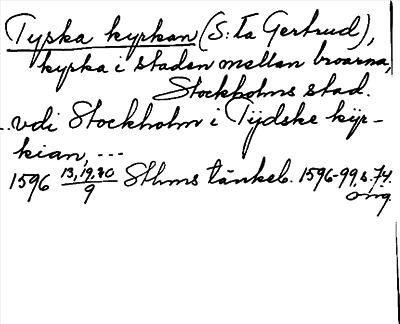 Tyska kyrkan (S:ta Gertrud),
kyrka i staden mellan broarna,
Stockholms stad.
..vdi Stockholm i Tÿdske kÿr-
kian, ...
1596 13,19,30/9 Sthms tänkeb. 1596-99, s. 74.
orig.